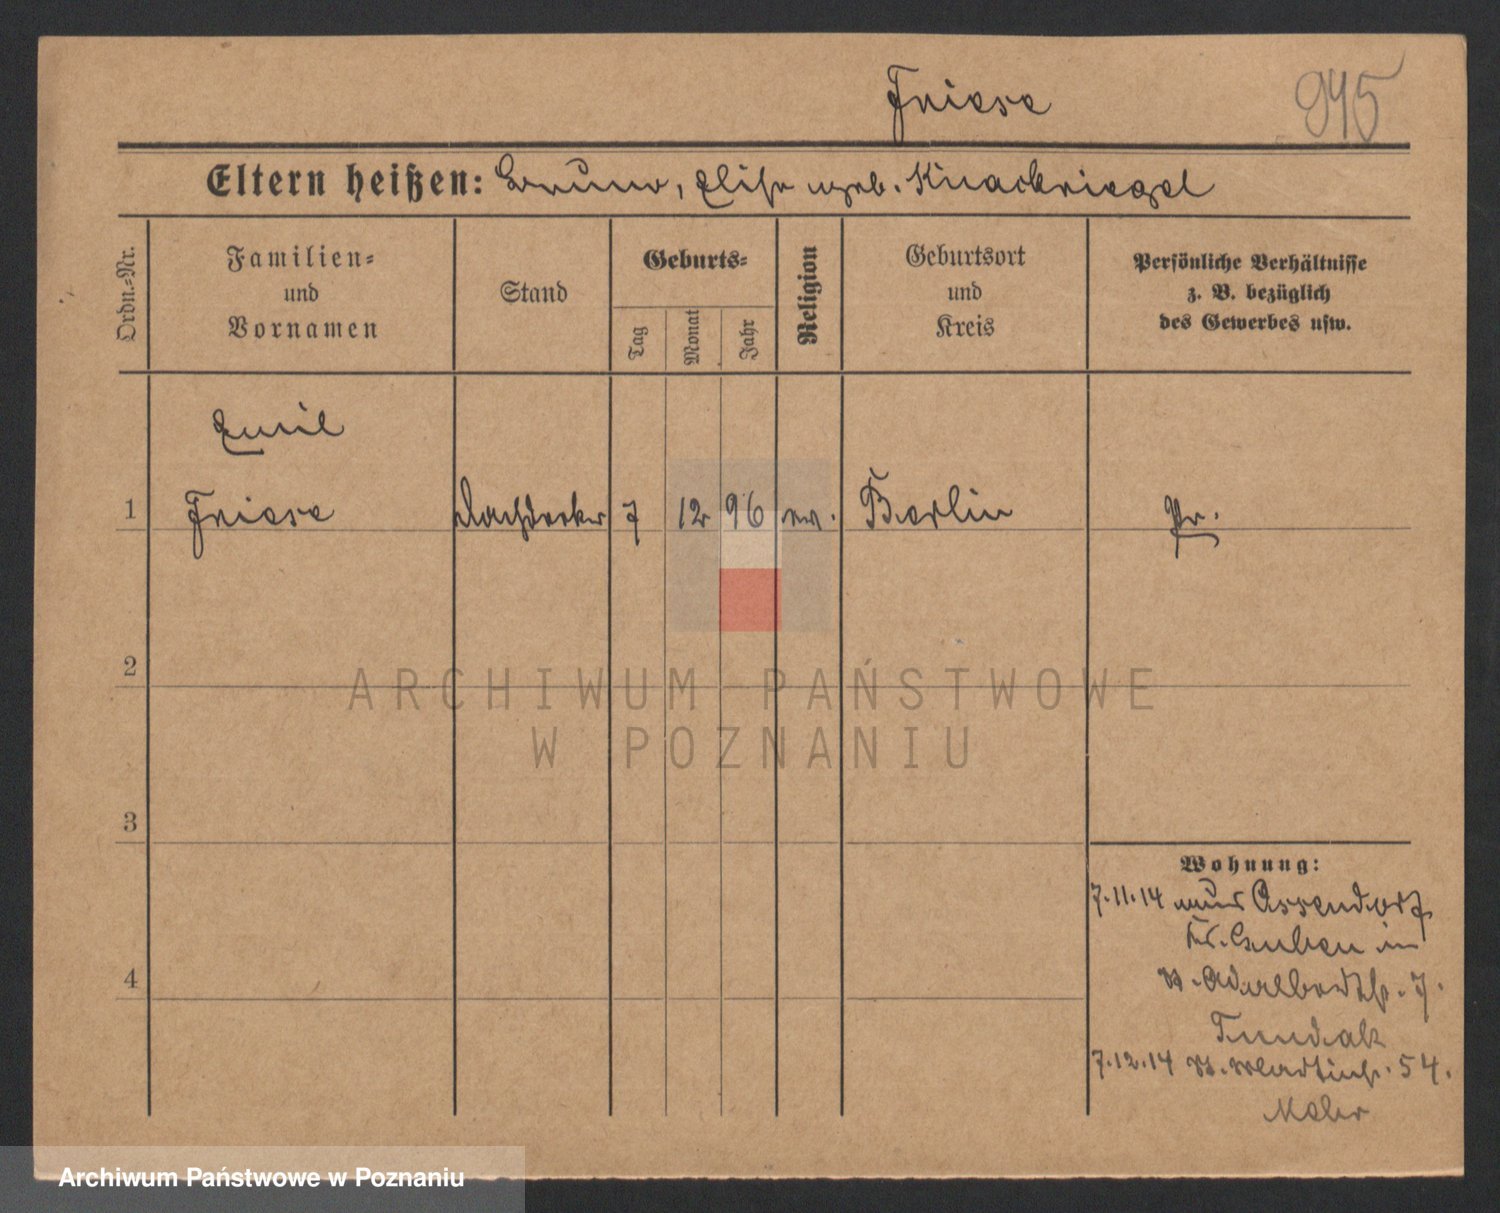 Friese 945
Eltern heißen: Bruno, Elise geb. Knackriegel
Ordn.-Nr.
Familien-
und
Vornamen
Stand
Geburts-
Tag
Monat
Jahr
Religion
Geburtsort
und
Kreis
Persönliche Verhältnisse
z. B. bezüglich
des Gewerbes usw.
Emil
1 Friese Dachdecker 7 12 96 ev. Berlin Pr.
2
ARCHIWUM PAŃSTWOWE
W POZNANIU
3
Wohnung:
7.11.14 Ossendorf
Kr. Guben in
4
St. Adalbertstr. 7.
7.12.14 St. Martinstr. 54.
Archiwum Państwowe w Poznaniu